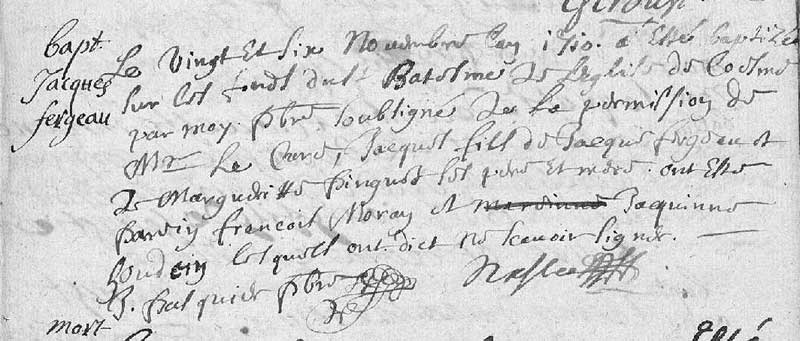 bapt.
Jacques
fergeau
Le Vingt Et six Novembre lan 1710. a Esté baptizé
sur les fondt du Batesme de leglise de Coesme
par moy pbre soubsigné de la permission de
Mr Le Curé, Jacquet fils de Jacque fergeau et
de Margueritte pinguet ses pere Et mere ont Este
parein francois Moray et Jaquinne
lesquels ont dict ne scavoir signer.
pbre
mort
Esté